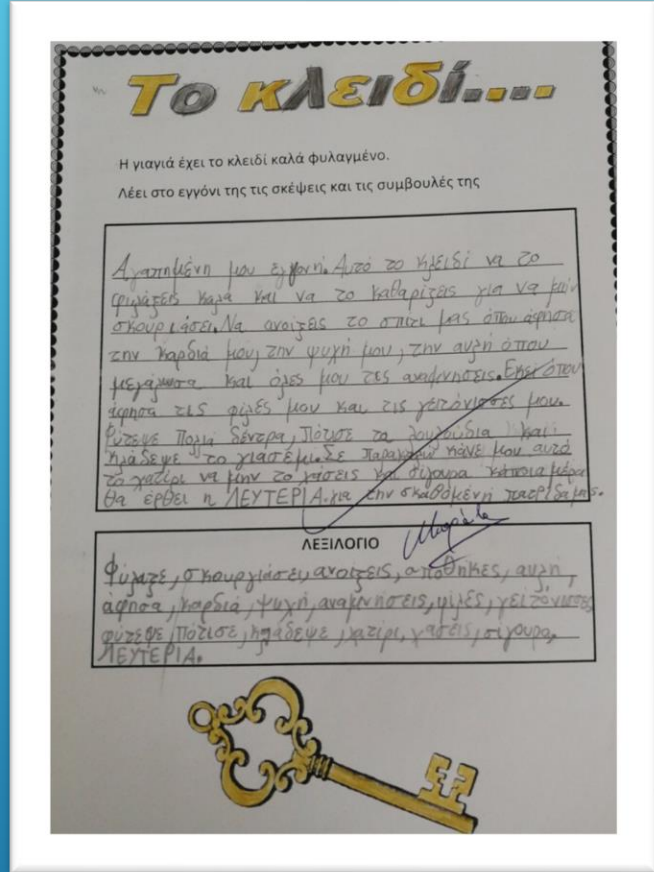 Το κλειδί....
Η γιαγιά έχει το κλειδί καλά φυλαγμένο.
Λέει στο εγγόνι της τις σκέψεις και τις συμβουλές της
Αγαπημένη μου εγγονή. Αυτό το κλειδί να το
φυλάξεις καλά και να το καθαρίζεις για να μην
σκουριάσει. Να ανοίξεις το σπίτι μας όπου άφησα
την καρδιά μου, την ψυχή μου, την αυλή όπου
μεγάλωσα και όλες μου τις αναμνήσεις. Εκεί όπου
άφησα τις φίλες μου και τις γειτόνισσες μου.
Φύτεψε πολλά δέντρα, πότισε τα λουλούδια και
κλάδεψε το γιασέμι. Σε παρακαλώ κάνε μου αυτό
το χατίρι να μην το χάσεις και σίγουρα κάποια μέρα
θα έρθει η ΛΕΥΤΕΡΙΑ. για την σκλαβομένη πατρίδα μας.
ΛΕΞΙΛΟΓΙΟ
Φύλαξε, σκουργιάσει, ανοίξεις, αποθήκες, αυλή,
άφησα, καρδιά, ψυχή, αναμνήσεις, φιλές, γειτόνισσες
φύτεψε, πότισε, κλάδεψε, χατίρι, χάσεις, σίγουρα,
ΛΕΥΤΕΡΙΑ.